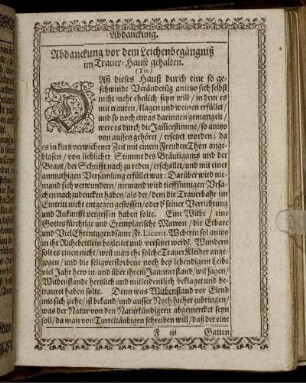 Abdanckung.
Abdanckung vor dem Leichenbegängniß
im Trauer-Hause gehalten.
(Tit:)
DAß dieses Hauß durch eine so ge-
schwinde Veränderũg anietzo sich selbst
nicht mehr ähnlich seyn will / in dem es
mit trauren / klagen und weinen erfüllet /
und so noch etwas darinnen gemangelt /
were es durch die Jam̃erstimme / so anitzo
von aussen gehöret / ersetzet worden; da
es in kurtz verwichener Zeit mit einem Freuden Thon ange-
blasen / von lieblicher Stimme des Bräutigams und der
Braut / der Schrifft nach zu reden / erschallet / und mit einer
anmuthigen Versamlung erfüllet war: Darüber wird nie-
mand sich verwundern / niemand wird tieffsinnigen Ursa-
chen nachzudencken haben / als der / dem die Trauerbahr im
Eintritt nicht entgegen gestossen / oder seiner Verrichtung
und Ankunfft vergessen haben solte. Eine Witbe / eine
Gottesfürchtige und Exemplarische Matron / die Erbare
und Viel Ehrentugendsame Fr. Weberin sol anitzo
in ihr Ruhebetlein begleitet und versetzet werdẽ. Wundern
solt es einen nicht / wo man ehe solche Trauer Kleider ange-
zogen / und die selig verstorbene noch bey lebendigem Leibe
viel Jahr hero in und über ihrem Jammerstand / wil sagen /
Witbenstande hertzlich und mitleidentlich beklaget und be-
trauret haben solte. Denn was Witbenstand vor Elend
mit sich ziehe / ist bekand / und ausser Noth hieher zubringen /
was der Natur von den Naturkündigern abgemercket seyn
sol / da man von Turteltäubigen schreiben will / daß der eine
F iij Gatten